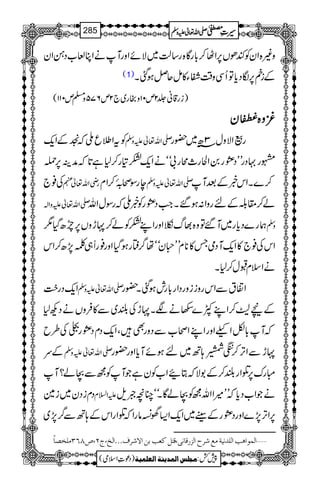 سیرتِ مصطفیٰ صلی اللہ تعالیٰ علیہ وسلم 285
وغیرہ ان کو کندھوں پر اٹھا کر بارگاہ رسالت میں لائے اور آپ نے اپنا لعاب دہن ان
کے زخم پر لگا دیا تو اُسی وقت شفاء کامل حاصل ہو گئی۔ (1)
(زرقانی جلد ۲ ص ۱۰ و بخاری ج ۲ ص ۵۷۶ و مسلم ص ۱۱۰)
غزوہ غطفان
ربیع الاول ۳ ھ میں حضور صلی اللہ تعالیٰ علیہ وسلم کو یہ اطلاع ملی کہ نجد کے ایک
مشہور بہادر ’’دعثور بن الحارث محاربی‘‘ نے ایک لشکر تیار کر لیا ہے تاکہ مدینہ پر حملہ
کرے۔ اس خبر کے بعد آپ صلی اللہ تعالیٰ علیہ وسلم چار سو صحابۂ کرام رضی اللہ تعالیٰ عنہم کی فوج
لے کر مقابلہ کے لئے روانہ ہو گئے۔ جب دعثور کو خبر ملی کہ رسول اللہ صلی اللہ تعالیٰ علیہ واٰلہ
وسلم ہمارے دیار میں آگئے تو وہ بھاگ نکلا اور اپنے لشکر کو لے کر پہاڑوں پر چڑھ گیا مگر
اس کی فوج کا ایک آدمی جس کا نام ’’حبان‘‘ تھا گرفتار ہو گیا اور فوراً ہی کلمہ پڑھ کر اس
نے اسلام قبول کر لیا۔
اتفاق سے اس روز زوردار بارش ہو گئی۔ حضور صلی اللہ تعالیٰ علیہ وسلم ایک درخت
کے نیچے لیٹ کر اپنے کپڑے سکھانے لگے۔ پہاڑ کی بلندی سے کافروں نے دیکھ لیا
کہ آپ بالکل اکیلے اور اپنے اصحاب سے دور بھی ہیں، ایک دم دعثور بجلی کی طرح
پہاڑ سے اتر کر ننگی شمشیر ہاتھ میں لئے ہوئے آیا اور حضور صلی اللہ تعالیٰ علیہ وسلم کے سر
مبارک پر تلوار بلند کر کے بولا کہ بتائیے اب کون ہے جو آپ کو مجھ سے بچا لے؟ آپ
نے جواب دیا کہ ’’میرا اللہ مجھ کو بچا لے گا۔‘‘ چنانچہ جبریل علیہ السلام دم زدن میں زمین
پر اتر پڑے اور دعثور کے سینے میں ایک ایسا گھونسہ مارا کہ تلوار اس کے ہاتھ سے گر پڑی
.....المواهب اللدنية مع شرح الزرقاني، قتل كعب بن الاشرف...الخ، ج٢، ص٣٦٨ ملخصاً
پیش کش: مجلس المدينة العلمية (دعوتِ اسلامی)